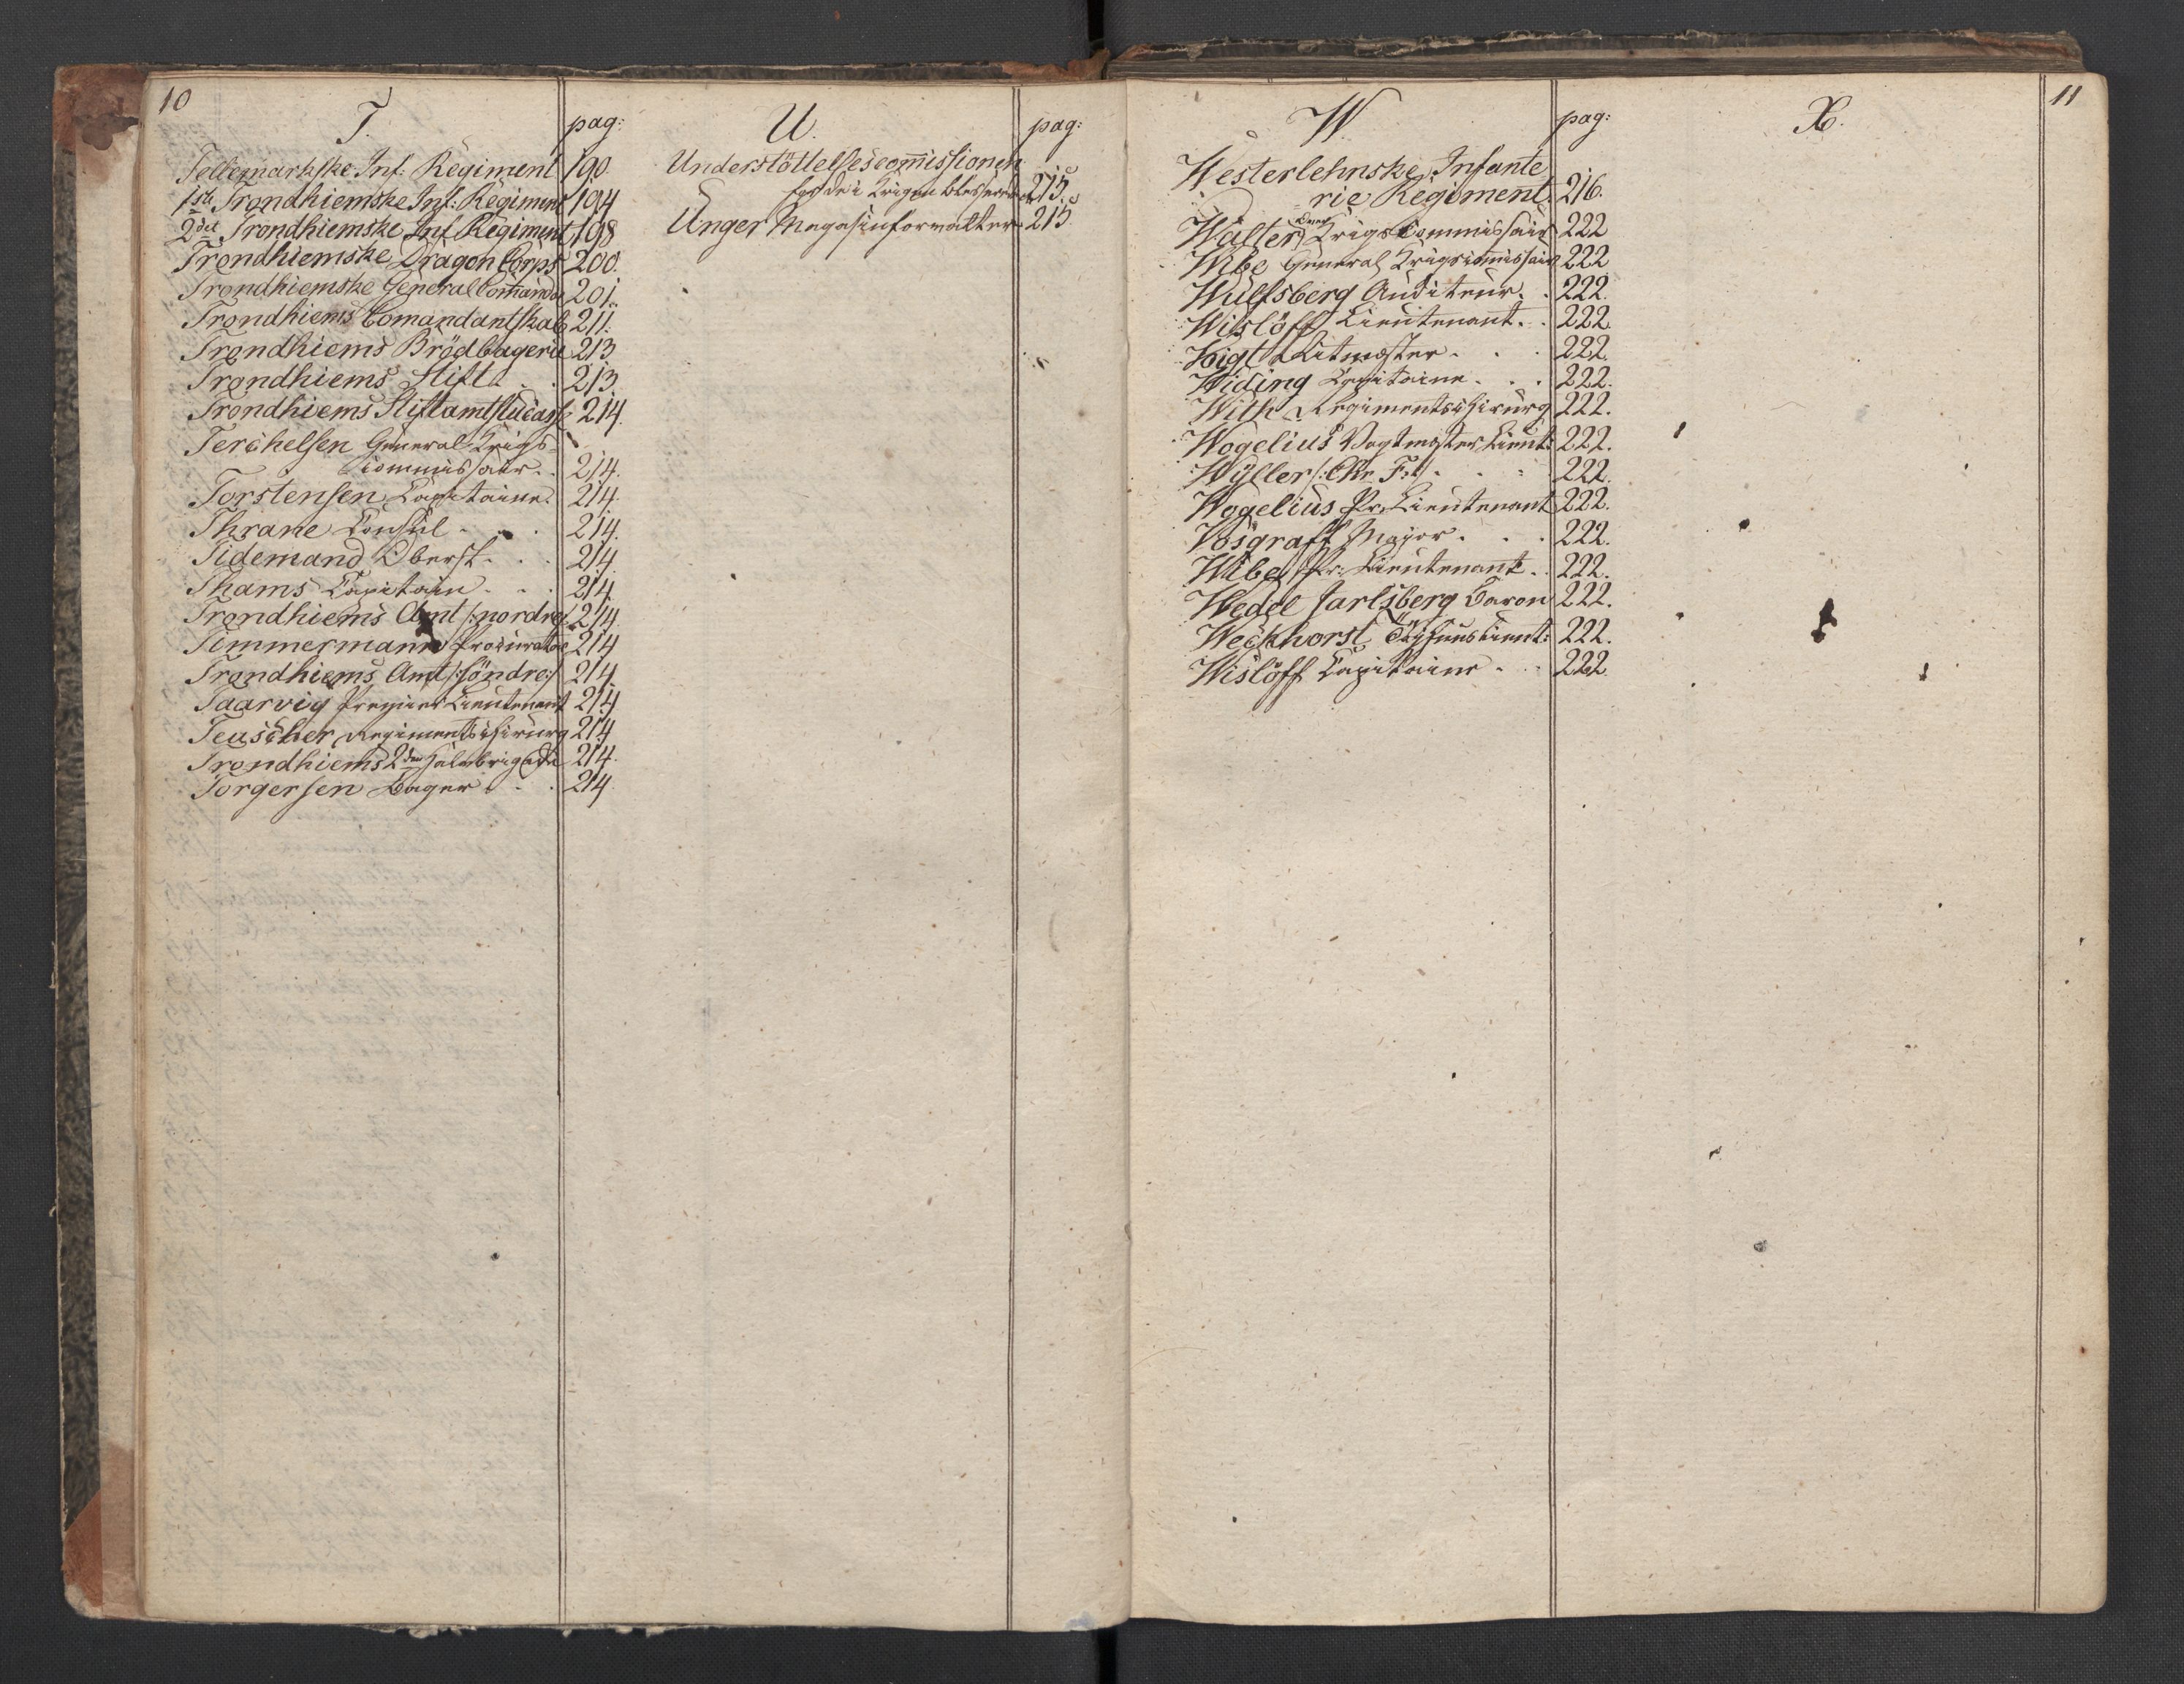 10
T.
pag:
Tellemarkske Inf: Regiment 190.
1ste Trondhiemske Inf: Regiment 194
2det Trondhiemske Inf Regiment 198
Trondhiemske Dragon Corps 200.
Trondhiemske General Comando 201.
Trondhiems Comandantskab 211.
Trondhiems Brödbageri 213
Trondhiems Stift 213.
Trondhiems Stiftamtstue 214.
Terchelsen General-Krigs-
commissair. 214.
Torstensen Capitaine. 214.
Thrane Consul 214.
Tidemand Oberst. 214.
Thams Capitain 214
Trondhiems Amt /:nordre:/ 214.
Timmermann Procurator 214
Trondhiems Amt /:söndre:/ 214
Taarvig Premier Lieutenant 214
Teuscher Regimentschirurg 214
Trondhiems 2den Halvbrigade 214.
Torgersen Bager 214
U.
pag:
Understöttelsescommissionen
for de i Krigen blesserede 215.
Unger Magasinforvalter 215
W
pag:
Westerlehnske Infante
rie Regiment. 216.
Walter Krigscommissair 222
Wibe General Krigscommissair 222
Wulfsberg Auditeur. 222.
Wislöff Lieutenant. 222.
Voigt Ritmester. 222.
Widing Capitaine. 222.
With Regimentschirurg 222.
Wogelius Vagtmester Lieut: 222.
Wyller /:Chr. F:/ 222.
Wogelius Pr. Lieutenant 222.
Vosgraff Major. 222.
Wibe Pr: Lieutenant. 222.
Wedel Jarlsberg Baron 222.
Weckhorst Töyhuus Lieut: 222.
Wislöff Capitaine. 222.
X.
11